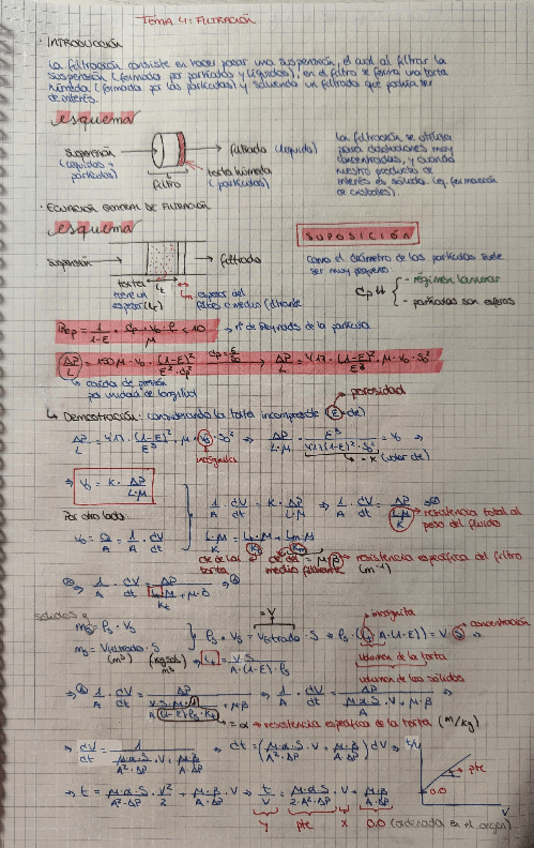 TEMA 4: FILTRACIÓN
· INTRODUCCIÓN
La filtración consiste en hacer pasar una suspensión, el cual al filtrar la
suspensión (formada por partículas y líquidos), en el filtro se forma una torta
húmeda (formada por las partículas) y saliendo un filtrado que podría ser
de interés.
esquema
suspensión
(líquidos +
partículas)
filtro
filtrado (líquido)
torta húmeda
(partículas)
La filtración se utiliza
para disoluciones muy
concentradas, y cuando
nuestro producto de
interés es sólido. (ej. formación
de cristales).
· ECUACIÓN GENERAL DE FILTRACIÓN
esquema
suspensión
filtrado
torta
tiene un
espesor (Lt)
Lt
Lm
espesor del
filtro o medio filtrante
SUPOSICIÓN
Como el diámetro de las partículas suele
ser muy pequeño
dp ↓↓
- régimen laminar
- partículas son esferas
Rep = 1/(1-ε) · dp · v0 · ρ/μ < 10 → nº de Reynolds de la partícula
ΔP/L = 150 μ · v0 · (1-ε)²/(ε³ · dp²) → ΔP/L = 4'17 · (1-ε)²/ε³ · μ · v0 · S0²
caída de presión
por unidad de longitud
↳ Demostración: considerando la torta incompresible (ε = cte)
porosidad
ΔP/L = 4'17 · (1-ε)²/ε³ · μ · v0 · S0² ⇒ ΔP/(L·μ) · ε³/(4'17(1-ε)² · S0²) = v0 ⇒
incógnita
= K (valor cte)
v0 = K · ΔP/(L·μ)
Por otro lado:
v0 = Q/A = 1/A · dV/dt
1/A · dV/dt = K · ΔP/(L·μ) ⇒ 1/A · dV/dt = ΔP/(L·μ/K)
resistencia total al
paso del fluido
L·μ/K = Lt·μ/Kt + Lm·μ/Km
cte de la
torta
cte del
medio filtrante
= μ·β → resistencia específica del filtro
(m⁻¹)
⇒ 1/A · dV/dt = ΔP/(Lt·μ/Kt + μ·β)
sólidos
ms = ρs · Vs
ms = Vfiltrado · S
(m³) (kg sól/m³)
= V
ρs · Vs = Vfiltrado · S ⇒ ρs · (Lt · A · (1-ε)) = V · S ⇒
incógnita
concentración
volumen de la torta
volumen de los sólidos
Lt = V·S/(A·(1-ε)·ρs)
⇒ 1/A · dV/dt = ΔP/(V·S·μ·1/(A(1-ε)ρs·Kt) + μβ) ⇒ 1/A · dV/dt = ΔP/(μ·α·S/A · V + μ·β) ⇒
= α → resistencia específica de la torta (m/kg)
⇒ dV/dt = 1/(μ·α·S/(A²·ΔP) · V + μ·β/(A·ΔP)) ⇒ dt = (μ·α·S/(A²·ΔP) · V + μ·β/(A·ΔP)) dV ⇒
⇒ t = μ·α·S/(A²·ΔP) · V²/2 + μ·β/(A·ΔP) · V ⇒ t/V = μ·α·S/(2·A²·ΔP) · V + μ·β/(A·ΔP)
y pte x O.O (ordenada en el origen)
t/V
pte
O.O
V